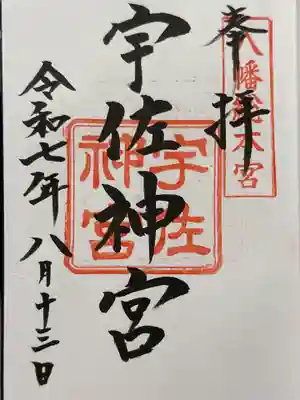 奉拝
八幡総本宮
宇佐神宮
宇佐神宮
令和七年八月十三日